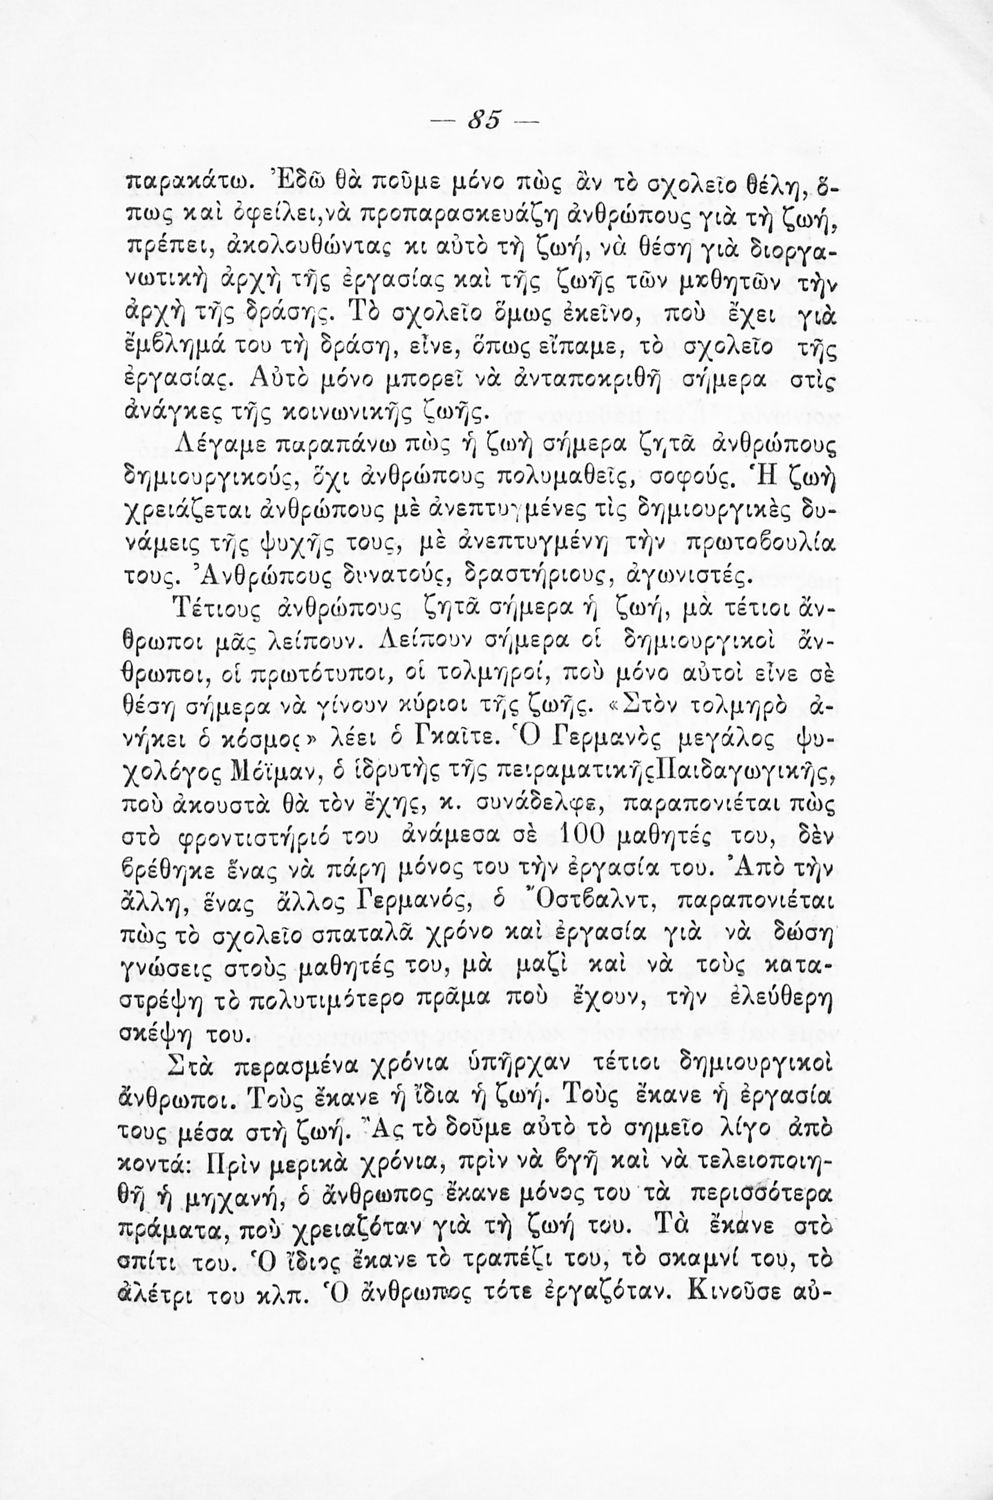 — 85 —
παρακάτω. Ἐδῶ θὰ ποῦμε μόνο πὼς ἂν τὸ σχολεῖο θέλῃ, ὅ-
πως καὶ ὀφείλει,νὰ προπαρασκευάζῃ ἀνθρώπους γιὰ τὴ ζωή,
πρέπει, ἀκολουθώντας κι αὐτὸ τὴ ζωή, νὰ θέσῃ γιὰ διοργα-
νωτικὴ ἀρχὴ τῆς ἐργασίας καὶ τῆς ζωῆς τῶν μαθητῶν τὴν
ἀρχὴ τῆς δράσης. Τὸ σχολεῖο ὅμως ἐκεῖνο, ποὺ ἔχει γιὰ
ἔμβλημά του τὴ δράση, εἶνε, ὅπως εἴπαμε, τὸ σχολεῖο τῆς
ἐργασίας. Αὐτὸ μόνο μπορεῖ νὰ ἀνταποκριθῆ σήμερα στὶς
ἀνάγκες τῆς κοινωνικῆς ζωῆς.
Λέγαμε παραπάνω πὼς ἡ ζωὴ σήμερα ζητᾶ ἀνθρώπους
δημιουργικούς, ὄχι ἀνθρώπους πολυμαθεῖς, σοφούς. Ἡ ζωὴ
χρειάζεται ἀνθρώπους μὲ ἀνεπτυγμένες τὶς δημιουργικὲς δυ-
νάμεις τῆς ψυχῆς τους, μὲ ἀνεπτυγμένη τὴν πρωτοβουλία
τους. Ἀνθρώπους δυνατούς, δραστήριους, ἀγωνιστές.
Τέτιους ἀνθρώπους ζητᾶ σήμερα ἡ ζωή, μὰ τέτιοι ἄν-
θρωποι μᾶς λείπουν. Λείπουν σήμερα οἱ δημιουργικοὶ ἄν-
θρωποι, οἱ πρωτότυποι, οἱ τολμηροί, ποὺ μόνο αὐτοὶ εἶνε σὲ
θέση σήμερα νὰ γίνουν κύριοι τῆς ζωῆς. «Στὸν τολμηρὸ ἀ-
νήκει ὁ κόσμος» λέει ὁ Γκαῖτε. Ὁ Γερμανὸς μεγάλος ψυ-
χολόγος Μόϊμαν, ὁ ἱδρυτὴς τῆς πειραματικῆςΠαιδαγωγικῆς,
ποὺ ἀκουστὰ θὰ τὸν ἔχῃς, κ. συνάδελφε, παραπονιέται πὼς
στὸ φροντιστήριό του ἀνάμεσα σὲ 100 μαθητές του, δὲν
βρέθηκε ἕνας νὰ πάρῃ μόνος του τὴν ἐργασία του. Ἀπὸ τὴν
ἄλλη, ἕνας ἄλλος Γερμανός, ὁ Ὄστβαλντ, παραπονιέται
πὼς τὸ σχολεῖο σπαταλᾶ χρόνο καὶ ἐργασία γιὰ νὰ δώσῃ
γνώσεις στοὺς μαθητές του, μὰ μαζὶ καὶ νὰ τοὺς κατα-
στρέψῃ τὸ πολυτιμότερο πρᾶμα ποὺ ἔχουν, τὴν ἐλεύθερη
σκέψη του.
Στὰ περασμένα χρόνια ὑπῆρχαν τέτιοι δημιουργικοὶ
ἄνθρωποι. Τοὺς ἔκανε ἡ ἴδια ἡ ζωή. Τοὺς ἔκανε ἡ ἐργασία
τους μέσα στὴ ζωή. Ἂς τὸ δοῦμε αὐτὸ τὸ σημεῖο λίγο ἀπὸ
κοντά: Πρὶν μερικὰ χρόνια, πρὶν νὰ βγῆ καὶ νὰ τελειοποιη-
θῆ ἡ μηχανή, ὁ ἄνθρωπος ἔκανε μόνος του τὰ περισσότερα
πράματα, ποὺ χρειαζόταν γιὰ τὴ ζωή του. Τὰ ἔκανε στὸ
σπίτι του. Ὁ ἴδιος ἔκανε τὸ τραπέζι του, τὸ σκαμνί του, τὸ
ἀλέτρι του κλπ. Ὁ ἄνθρωπος τότε ἐργαζόταν. Κινοῦσε αὐ-